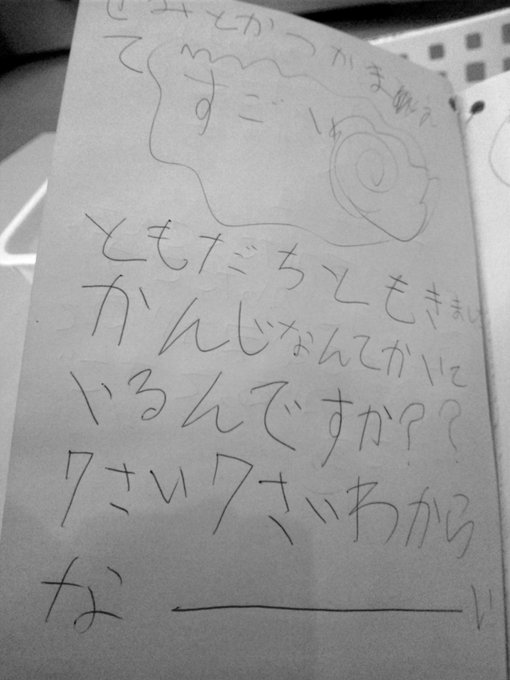 せみとかつかまえ
て
すご い
ともだちともきまし
かんじなんてかいて
いるんですか??
7さい7さいわから
な――――い